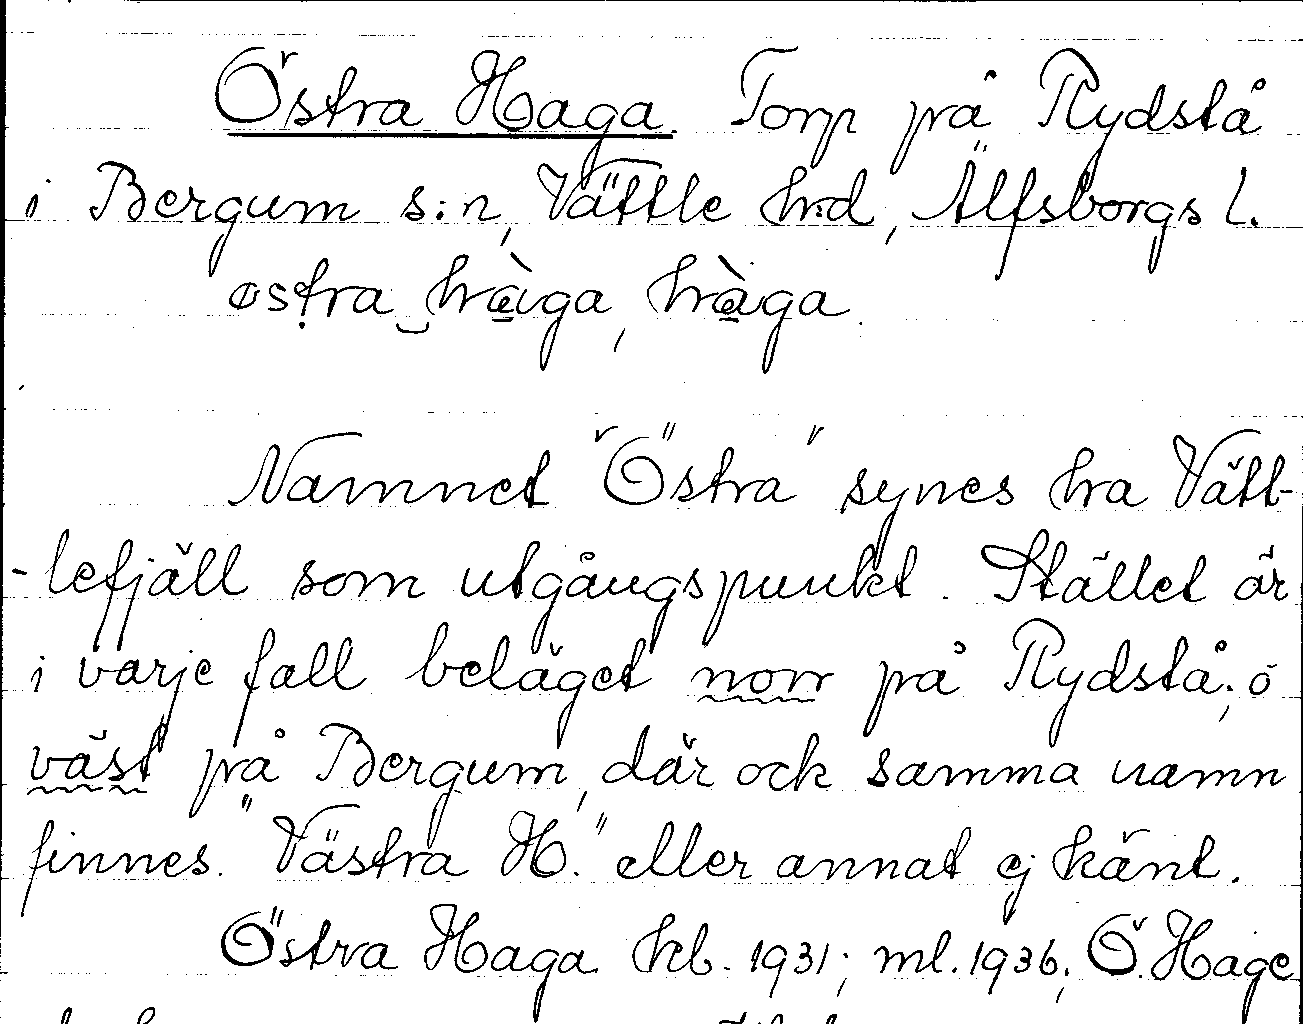 Östra Haga Torp på Rydstå
i Bergum s:n, Vättle hrd, Älfsborgs l.
østra hàga, hàga.
Namnet "Östra" synes ha Vätt-
-lefjäll som utgångspunkt. Stället är
i varje fall beläget norr på Rydstå; o
väst på Bergum, där ock samma namn
finnes. "Västra H." eller annat ej känt.
Östra Haga kb. 1931; ml. 1936; Ö. Hage